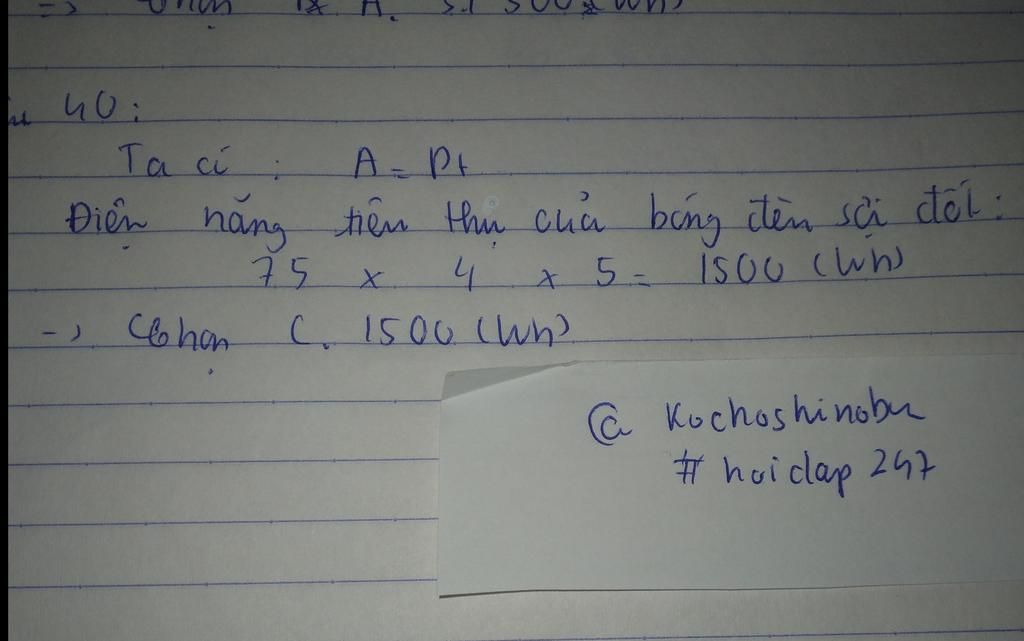 => Chọn A. 31500 (Wh)
40:
Ta cí : A = Pt
Điện năng tiên thụ của bóng đèn sợi đốt:
75 x 4 x 5 = 1500 (Wh)
-> Chọn C. 1500 (Wh)
@ Kochoshinobu
# hoidap 247